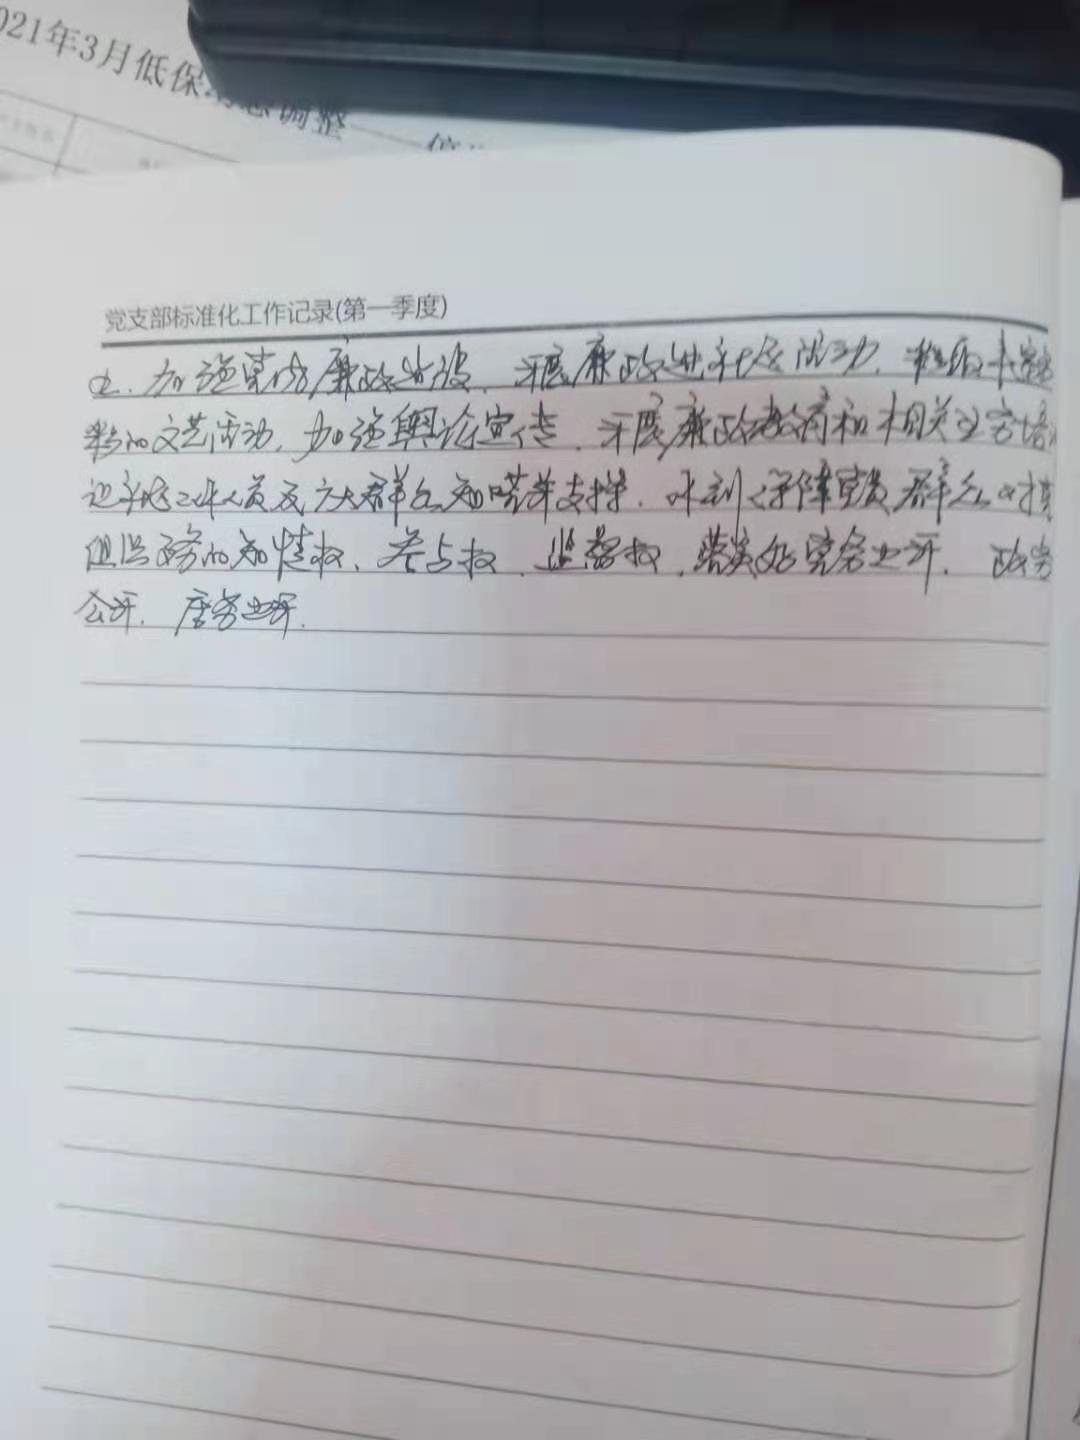 021年3月低保动态调整
党支部标准化工作记录(第一季度)
加强党的廉政建设、开展廉政进社区活动、
的文艺活动、加强舆论宣传、开展廉政教育和相关业务培
工作人员及广大群众知晓并支持、党员群众对
的知情权、参与权、监督权、落实好党务公开、政务
公开、居务公开.